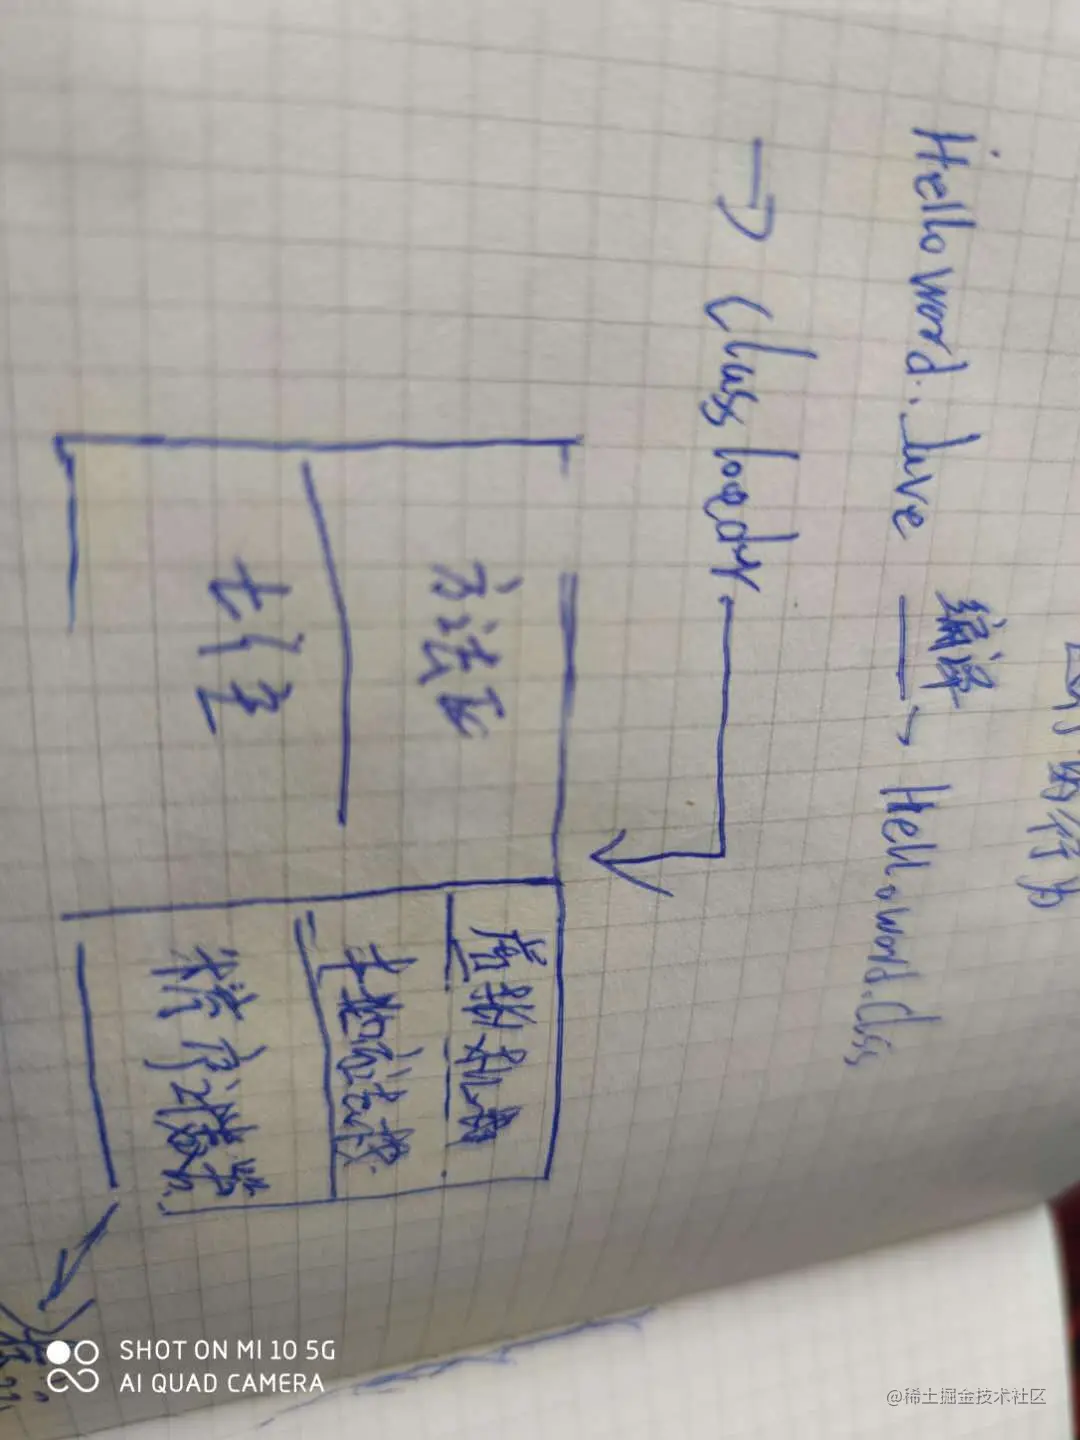 的行为
Helloword.Jave 编译 Helloword.Class
Classloadr
虚拟机栈
方法区
本地方法栈
程序计数器
SHOT ON MI 10 5G
AI QUAD CAMERA
@稀土掘金技术社区